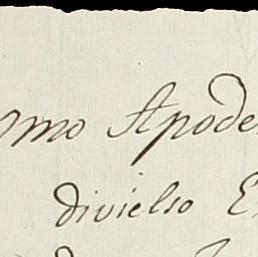 omo Apode
divielso E